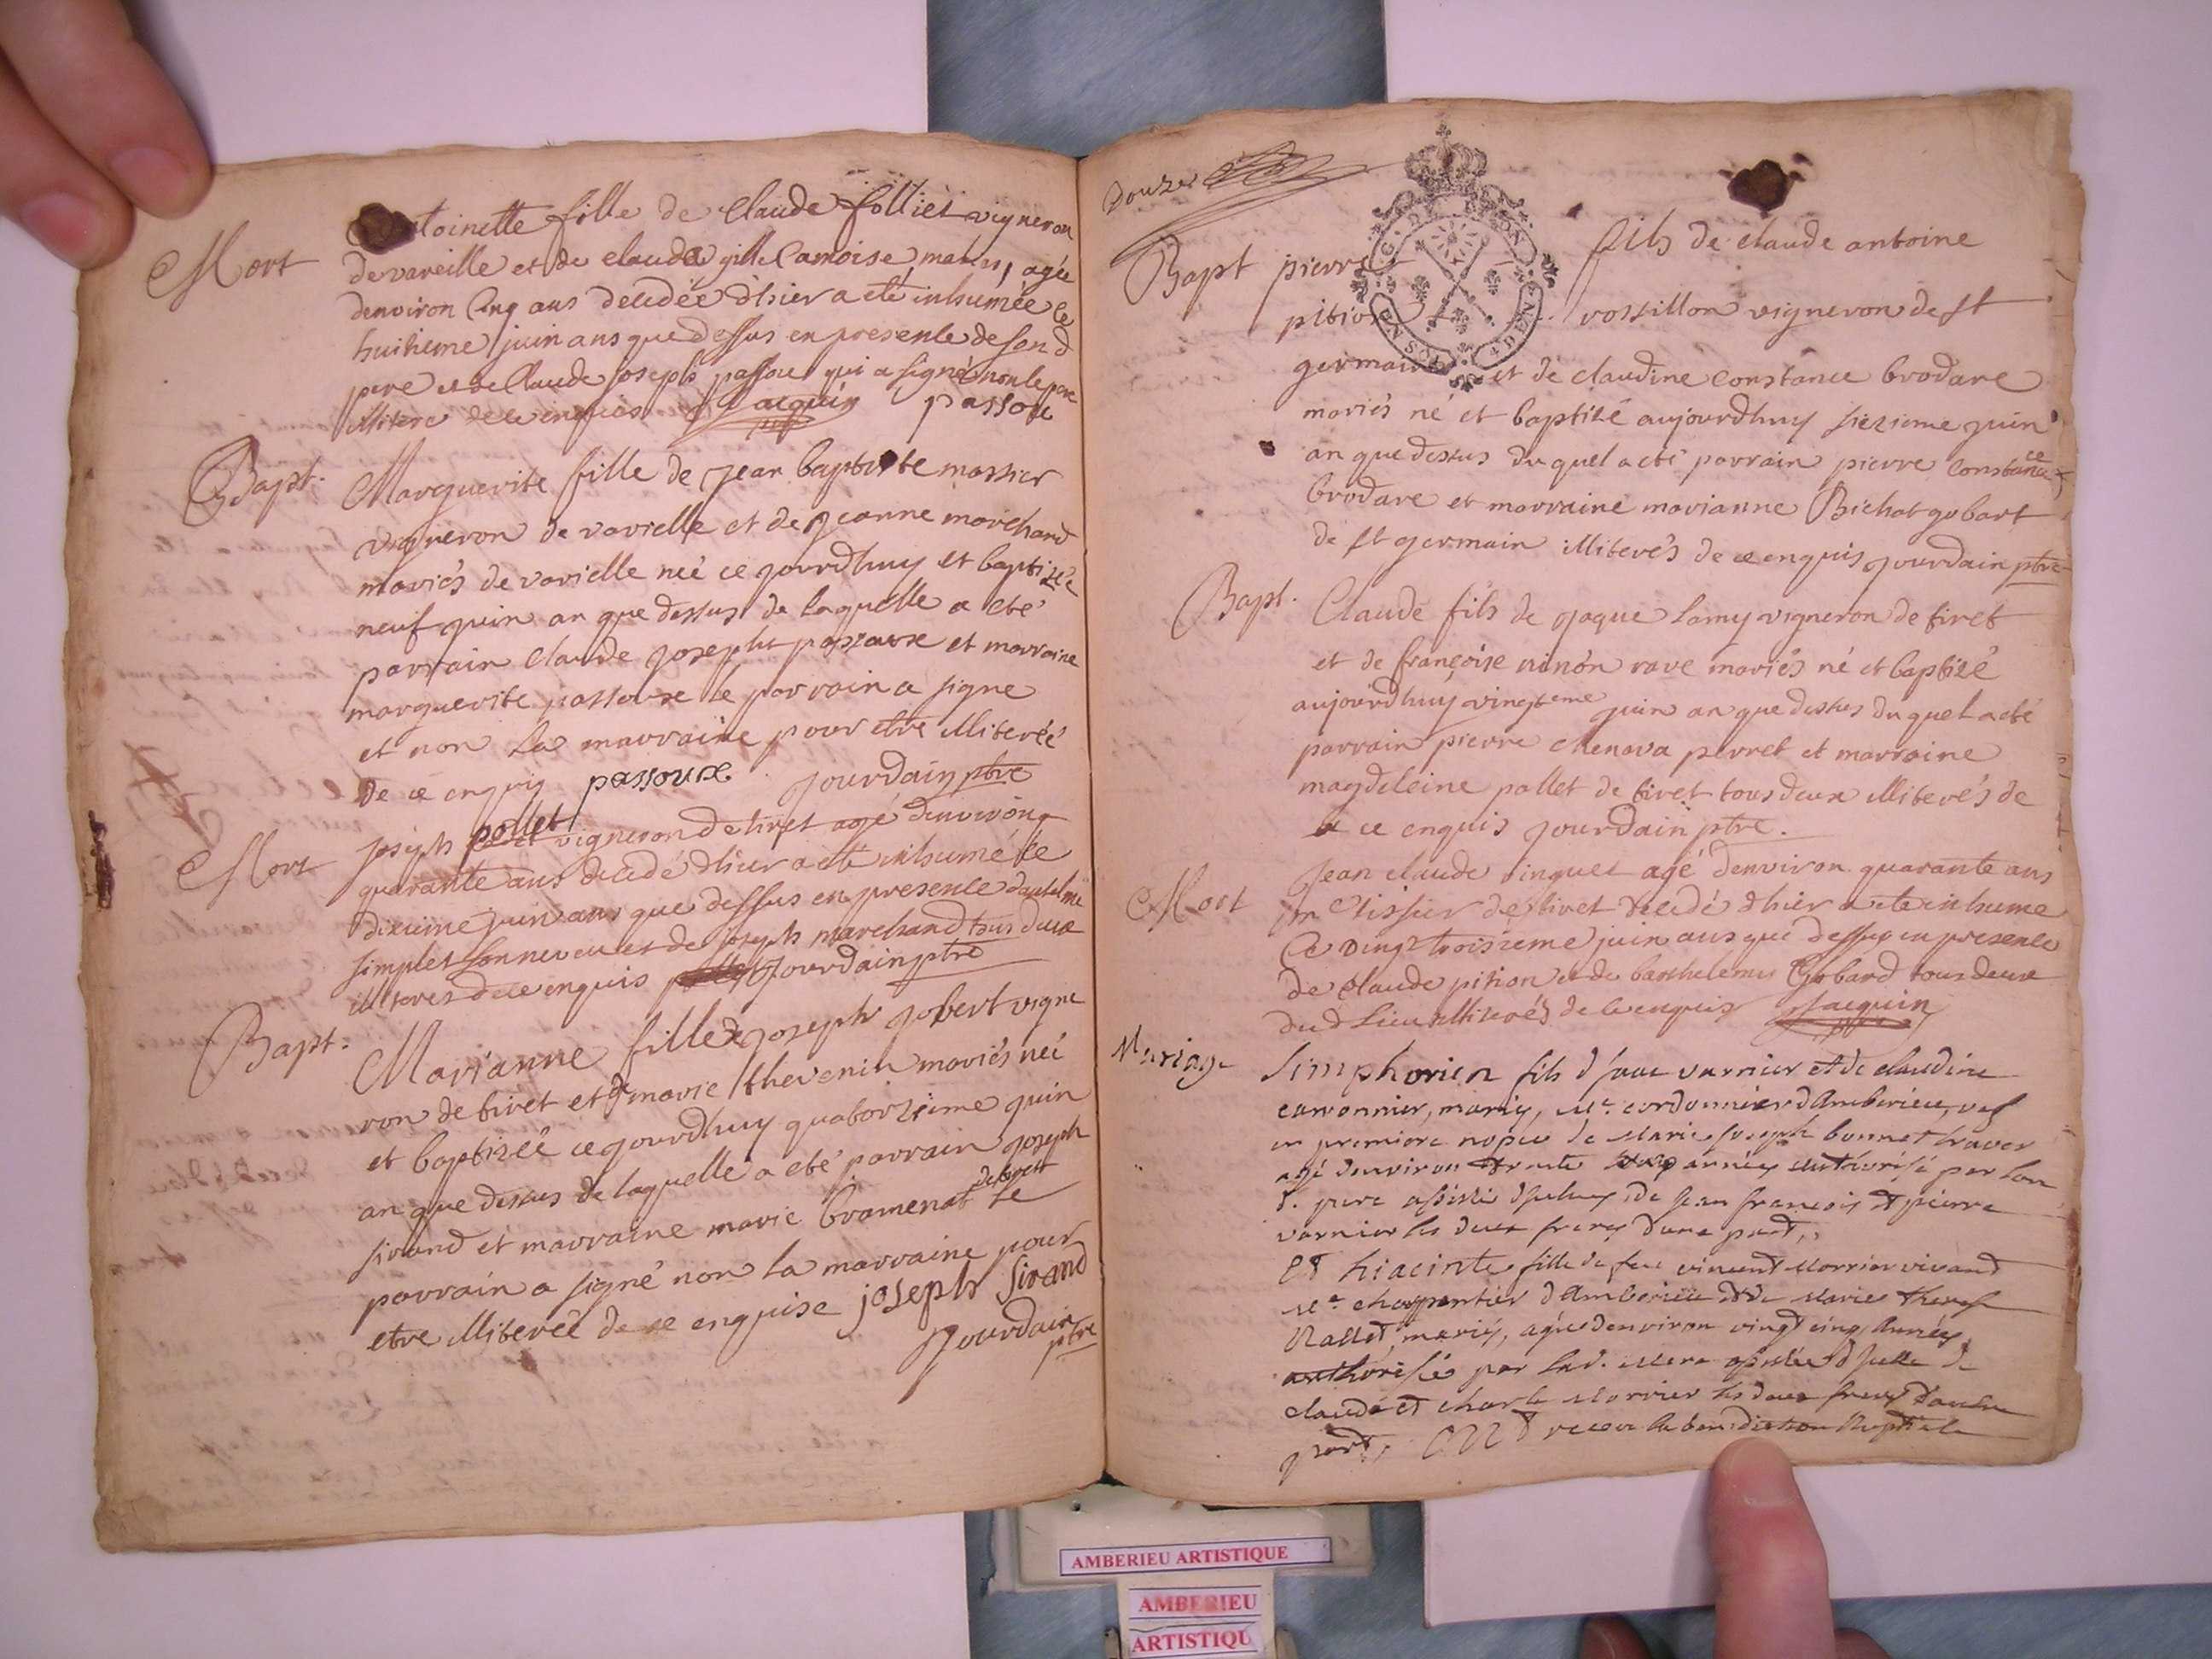 Mort
toinette fille de Claude follies vigneron
de vareille et de claude gille mariés, agée
denviron Cinq ans decedée d'hier a eté inhumée le
huitieme juin ans que dessus en presente de son d
pere et de Claude joseph passou qui a signé non le pere
illitere de ce enquis Jacquin passou
Bapt.
Marguerite fille de jean baptiste massier
vigneron de varielle et de jeanne marchand
mariés de varielle neé ce jourdhuy et baptizée
neuf juin an que dessus de laquelle a eté
parrain claude josepht passoux et marraine
marguerite passouxe le parrain a signe
et non la marraine pour etre illitereé
de ce enquis passoux jourdain ptre
Mort
joseph pollet vigneron de tiret agé denviron
quarante ans decedé dhier a eté inhumé le
dixieme juin ans que dessus en presente
simplet son neveu et de joseph marchand tous deux
illiteres de ce enquis jourdain ptre
Bapt.
Marianne fille de joseph jobert vigne
ron de tiret et de marie thevenin mariés neé
et baptizeé ce jourdhuy quatorzieme juin
an que dessus de laquelle a eté parrain joseph
sirand et marraine marie bramenat de tiret le
parrain a signé non la marraine pour
etre illitereé de ce enquise joseph sirand
jourdain
ptre
Douze
G. DE DIJON
Bapt pierre fils de claude antoine
pition rossillon vigneron de st
germain et de claudine constance brodare
mariés né et baptizé aujourdhuy siezieme juin
an que dessus duquel a eté parrain pierre constance
brodare et marraine marianne Bichat gobart
de st germain illiterés de ce enquis jourdain ptre
Bapt.
Claude fils de jaque lamy vigneron de tiret
et de françoise ninon rave mariés né et baptizé
aujourdhuy vingtieme juin an que dessus duquel a eté
parrain pierre chenava perret et marraine
magdeleine pallet de tiret tous deux illiterés de
ce enquis jourdain ptre.
Mort
Jean claude agé denviron quarante ans
tissier de tiret decedé dhier a eté inhume
Ce vingt troisieme juin ans que dessus en presente
de Claude pition et de barthelemis Gobard tous deux
dud Lieu illiterés de ce enquis Jacquin
Mariage
Simphorien fils d varnier et de claudine
carronnier, mariés, Me. cordonnier d'Amberieu, vef
en premiere nopce de Marie joseph bonnet
agé denviron trente années authorisé par son
d. pere assisté d de jean françois et pierre
varnier les deux freres d'une part,
Et hiacinte fille de feu vincent vivand
Me. charpentier d'Amberieu et de Marie therese
mariés, agée denviron vingt cinq Années
authorisée par lad. Mere assistée d
claude et charle les deux freres d'autre
part, ONT receu la benediction Nuptiale
AMBERIEU ARTISTIQUE
AMBERIEU
ARTISTIQU